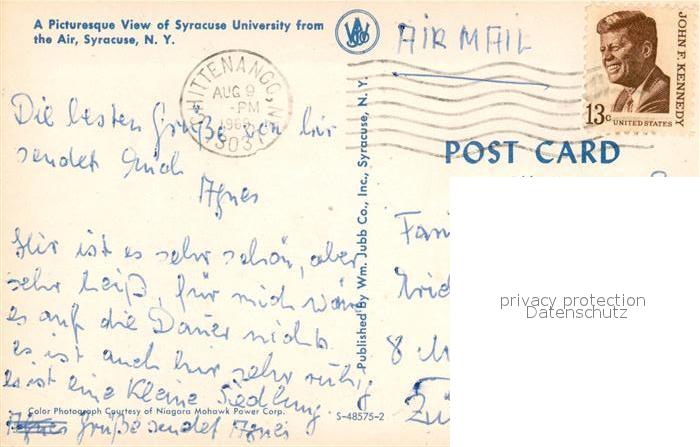 A Picturesque View of Syracuse University from
the Air, Syracuse, N. Y.
AIR MAIL
CHITTENANGO, N.Y.
AUG 9
-PM
JOHN F. KENNEDY
13c UNITED STATES
POST CARD
Die besten Grüße von hir
sendet Euch
Agnes
Hir ist es sehr schön, aber
sehr heiß, für mich wäre
es auf die Dauer nichts.
es ist auch hir sehr ruhig
es ist eine kleine Siedlung.
Agnes Grüße sendet Agnes
Published By Wm. Jubb Co., Inc., Syracuse, N. Y.
Color Photograph Courtesy of Niagara Mohawk Power Corp.
S-48575-2
Fam
8 M
Zü
privacy protection
Datenschutz